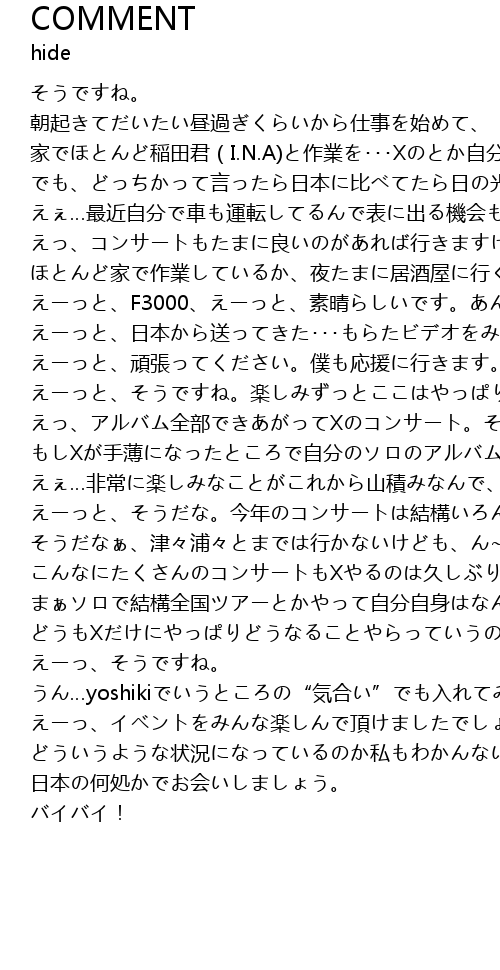 COMMENT
hide
そうですね。
朝起きてだいたい昼過ぎくらいから仕事を始めて、
家でほとんど稲田君 ( I.N.A)と作業を･･･Xのとか自分
でも、どっちかって言ったら日本に比べてたら日の光
えぇ...最近自分で車も運転してるんで表に出る機会も
えっ、コンサートもたまに良いのがあれば行きますけ
ほとんど家で作業しているか、夜たまに居酒屋に行く
えーっと、F3000、えーっと、素晴らしいです。あん
えーっと、日本から送ってきた･･･もらたビデオをみ
えーっと、頑張ってください。僕も応援に行きます。
えーっと、そうですね。楽しみずっとここはやっぱり
えっ、アルバム全部できあがってXのコンサート。そ
もしXが手薄になったところで自分のソロのアルバム
えぇ...非常に楽しみなことがこれから山積みなんで、
えーっと、そうだな。今年のコンサートは結構いろん
そうだなぁ、津々浦々とまでは行かないけども、ん~
こんなにたくさんのコンサートもXやるのは久しぶり
まぁソロで結構全国ツアーとかやって自分自身はなん
どうもXだけにやっぱりどうなることやらっていうの
えーっ、そうですね。
うん...yoshikiでいうところの“気合い”でも入れてみ
えーっ、イベントをみんな楽しんで頂けましたでしょ
どういうような状況になっているのか私もわかんない
日本の何処かでお会いしましょう。
バイバイ！